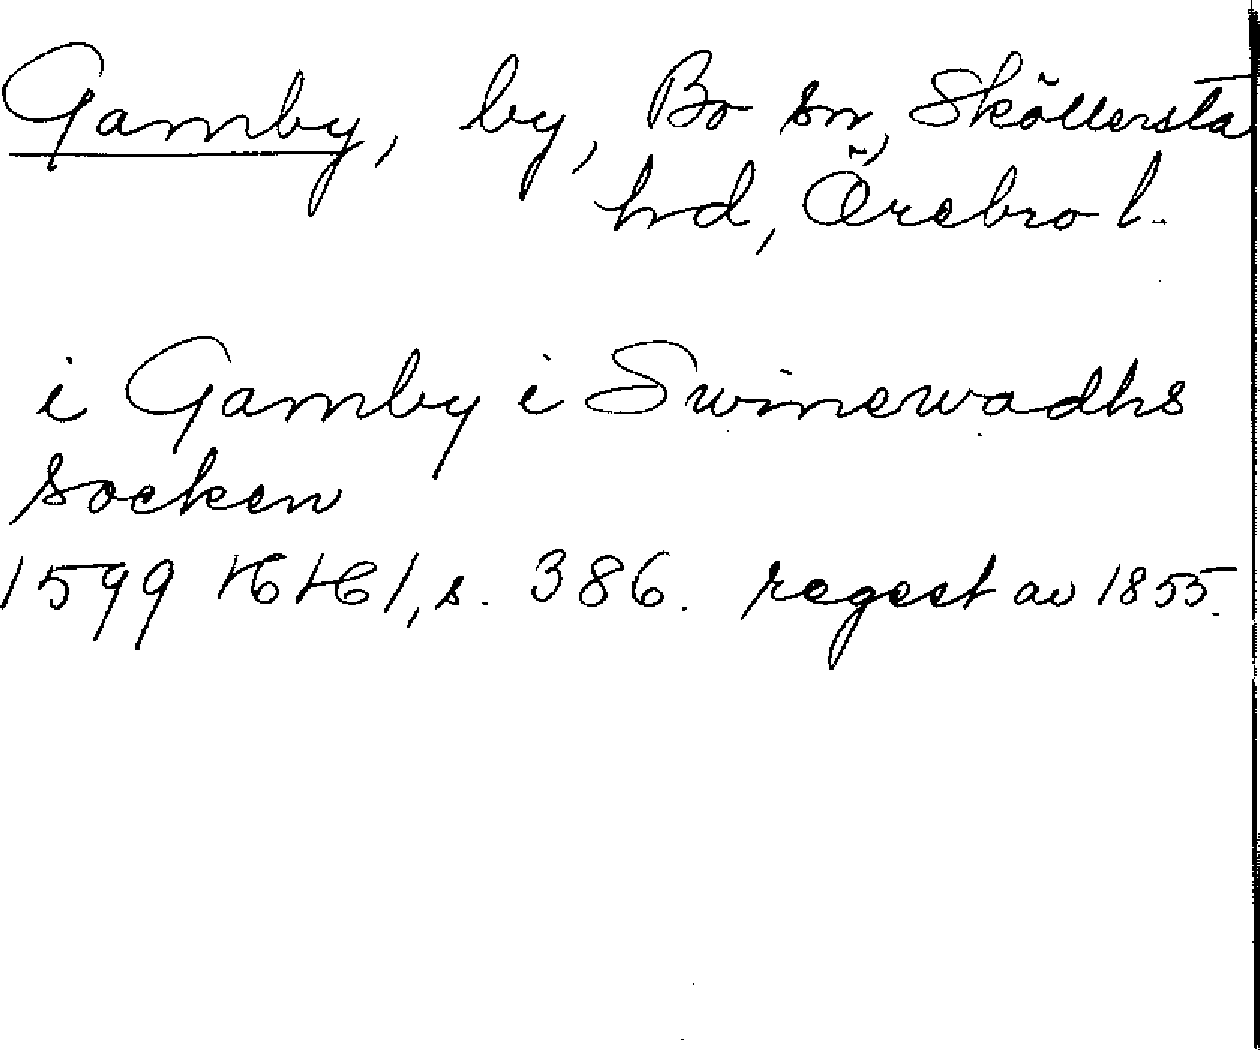 Gamby, by, Bo sn, Sköllersta
hd, Örebro l.
i Gamby i Swinewadhs
socken
1599 HH 1, s. 386. regest av 1855.